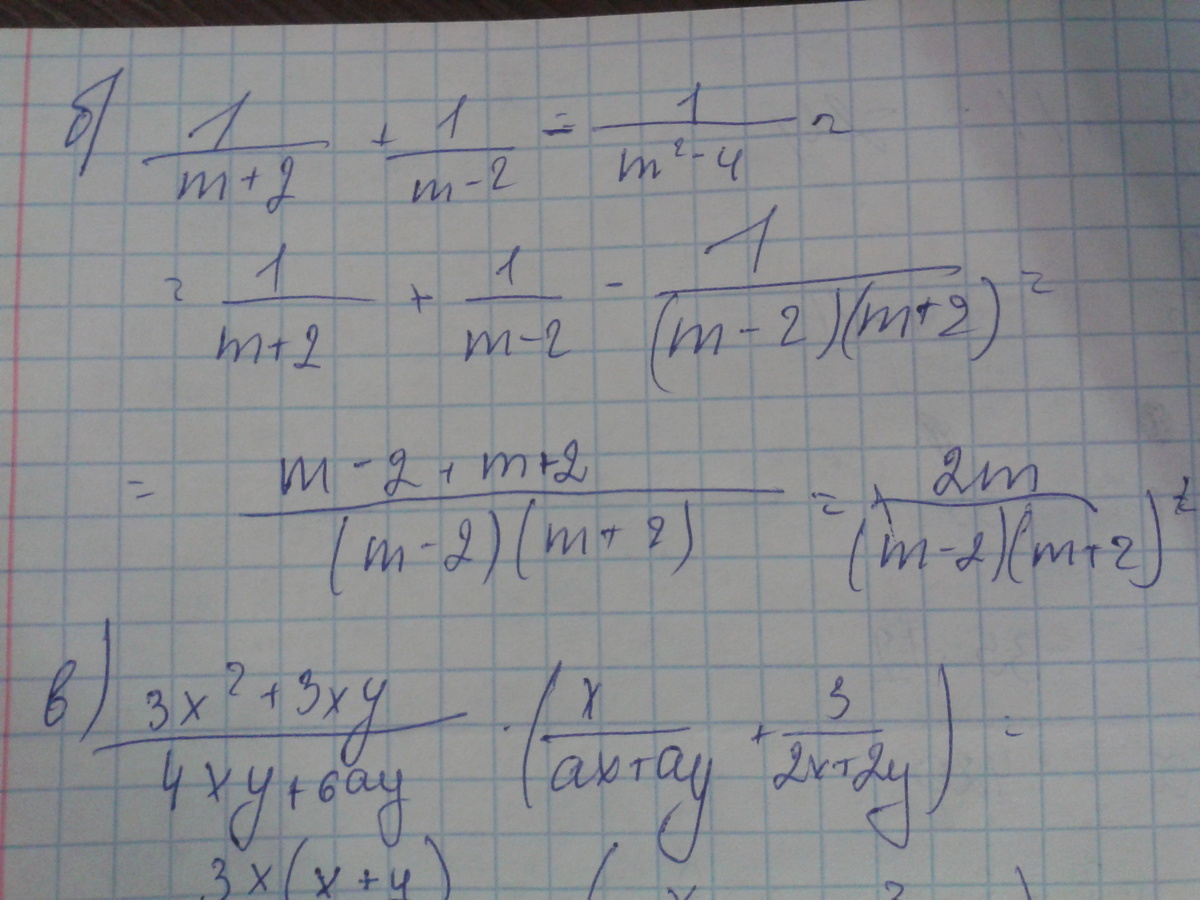 б) 1/(m+2) + 1/(m-2) = 1/(m²-4) =
= 1/(m+2) + 1/(m-2) - 1/((m-2)(m+2)) =
= (m-2+m+2)/((m-2)(m+2)) = 2m/((m-2)(m+2)) =
в) (3x²+3xy)/(4xy+6ay) · (x/(ax+ay) + 3/(2x+2y)) =
3x(x+y) ( x 3 )